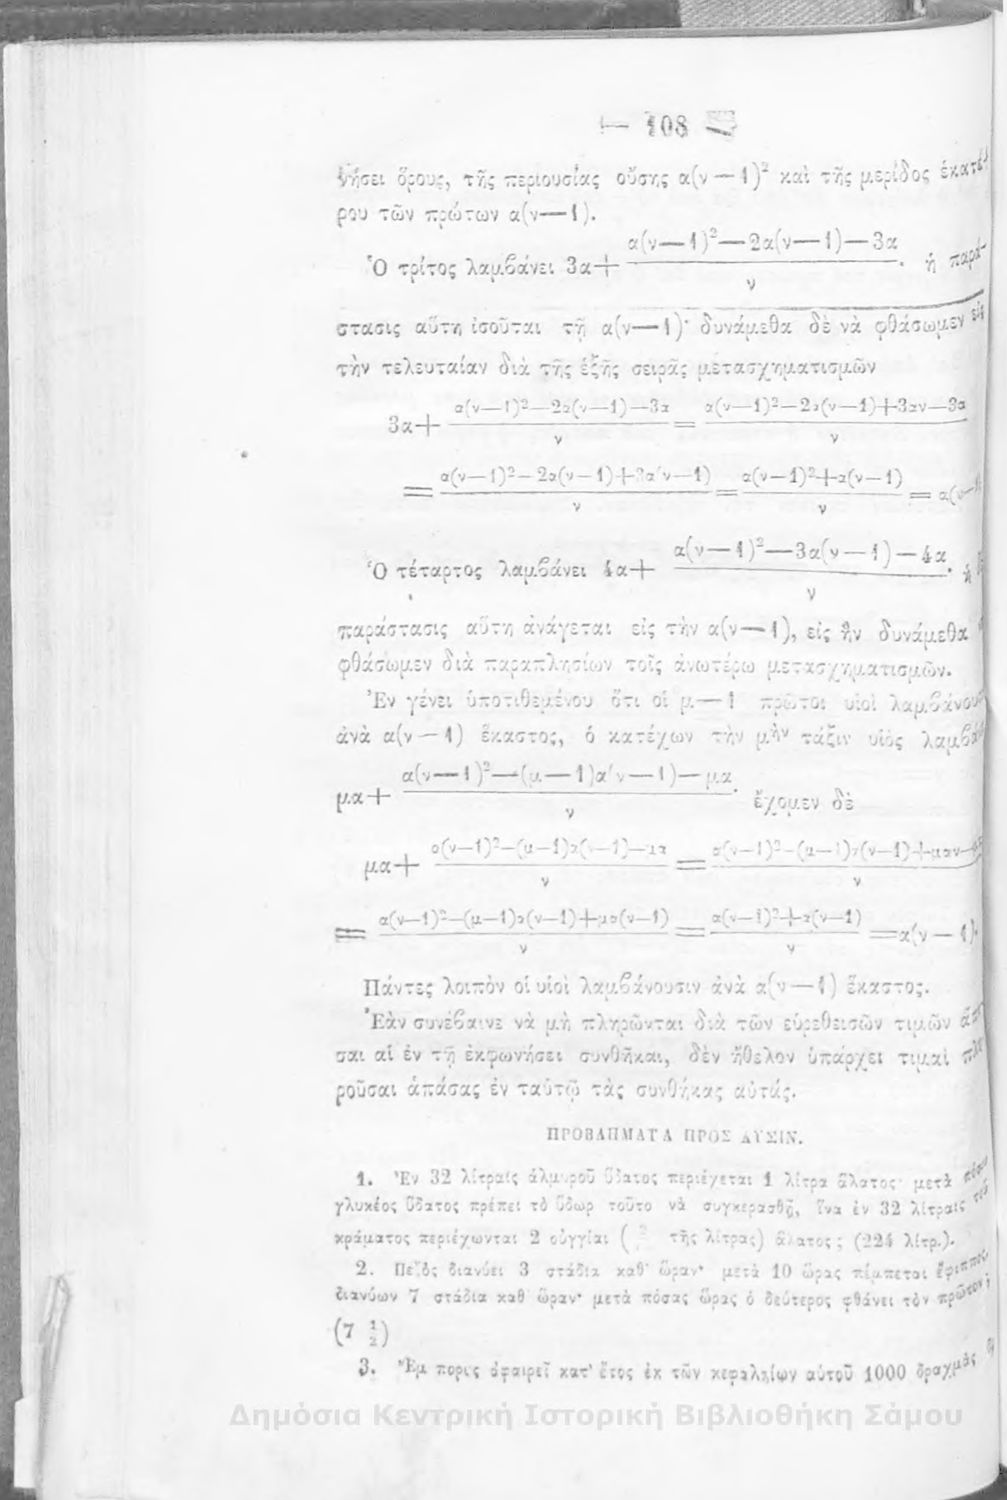 — 108 —
θήσει ὅρους, τῆς περιουσίας οὔσης α(ν—1)² καὶ τῆς μερίδος ἑκατέ-
ρου τῶν πρώτων α(ν—1).
Ὁ τρίτος λαμβάνει 3α+ α(ν—1)²—2α(ν—1)—3α / ν · ἡ παρά-
στασις αὕτη ἰσοῦται τῇ α(ν—1)· δυνάμεθα δὲ νὰ φθάσωμεν εἰς
τὴν τελευταίαν διὰ τῆς ἑξῆς σειρᾶς μετασχηματισμῶν
3α+ α(ν—1)²—2α(ν—1)—3α / ν = α(ν—1)²—2α(ν—1)+3αν—3α / ν
= α(ν—1)²—2α(ν—1)+3α(ν—1) / ν = α(ν—1)²+α(ν—1) / ν = α(ν—1)
Ὁ τέταρτος λαμβάνει 4α+ α(ν—1)²—3α(ν—1)—4α / ν · ἡ
παράστασις αὕτη ἀνάγεται εἰς τὴν α(ν—1), εἰς ἣν δυνάμεθα
φθάσωμεν διὰ παραπλησίων τοῖς ἀνωτέρω μετασχηματισμῶν.
Ἐν γένει ὑποτιθεμένου ὅτι οἱ μ—1 πρῶτοι υἱοὶ λαμβάνου
ἀνὰ α(ν—1) ἕκαστος, ὁ κατέχων τὴν μὴν τάξιν υἱὸς λαμβά
μα+ α(ν—1)²—(μ—1)α(ν—1)—μα / ν · ἔχομεν δὲ
μα+ α(ν—1)²—(μ—1)α(ν—1)—μα / ν = α(ν—1)²—(μ—1)α(ν—1)+μαν—μα / ν
= α(ν—1)²—(μ—1)α(ν—1)+μα(ν—1) / ν = α(ν—1)²+α(ν—1) / ν =α(ν—1).
Πάντες λοιπὸν οἱ υἱοὶ λαμβάνουσιν ἀνὰ α(ν—1) ἕκαστος.
Ἐὰν συνέβαινε νὰ μὴ πληρῶνται διὰ τῶν εὑρεθεισῶν τιμῶν ἅπα
σαι αἱ ἐν τῇ ἐκφωνήσει συνθῆκαι, δὲν ἤθελον ὑπάρχει τιμαὶ πλη
ροῦσαι ἁπάσας ἐν ταὐτῷ τὰς συνθήκας αὐτάς.
ΠΡΟΒΛΗΜΑΤΑ ΠΡΟΣ ΛΥΣΙΝ.
1. Ἐν 32 λίτραις ἁλμυροῦ ὕδατος περιέχεται 1 λίτρα ἅλατος· μετὰ πόσου
γλυκέος ὕδατος πρέπει τὸ ὕδωρ τοῦτο νὰ συγκερασθῇ, ἵνα ἐν 32 λίτραις τοῦ
κράματος περιέχωνται 2 οὐγγίαι ( τῆς λίτρας) ἅλατος; (224 λίτρ.).
2. Πεζὸς διανύει 3 στάδια καθ' ὥραν· μετὰ 10 ὥρας πέμπεται ἔφιππος,
διανύων 7 στάδια καθ' ὥραν· μετὰ πόσας ὥρας ὁ δεύτερος φθάνει τὸν πρῶτον;
(7 1/2)
3. Ἔμπορός ἀφαιρεῖ κατ' ἔτος ἐκ τῶν κεφαλαίων αὐτοῦ 1000 δραχμὰς
Δημόσια Κεντρική Ιστορική Βιβλιοθήκη Σάμου